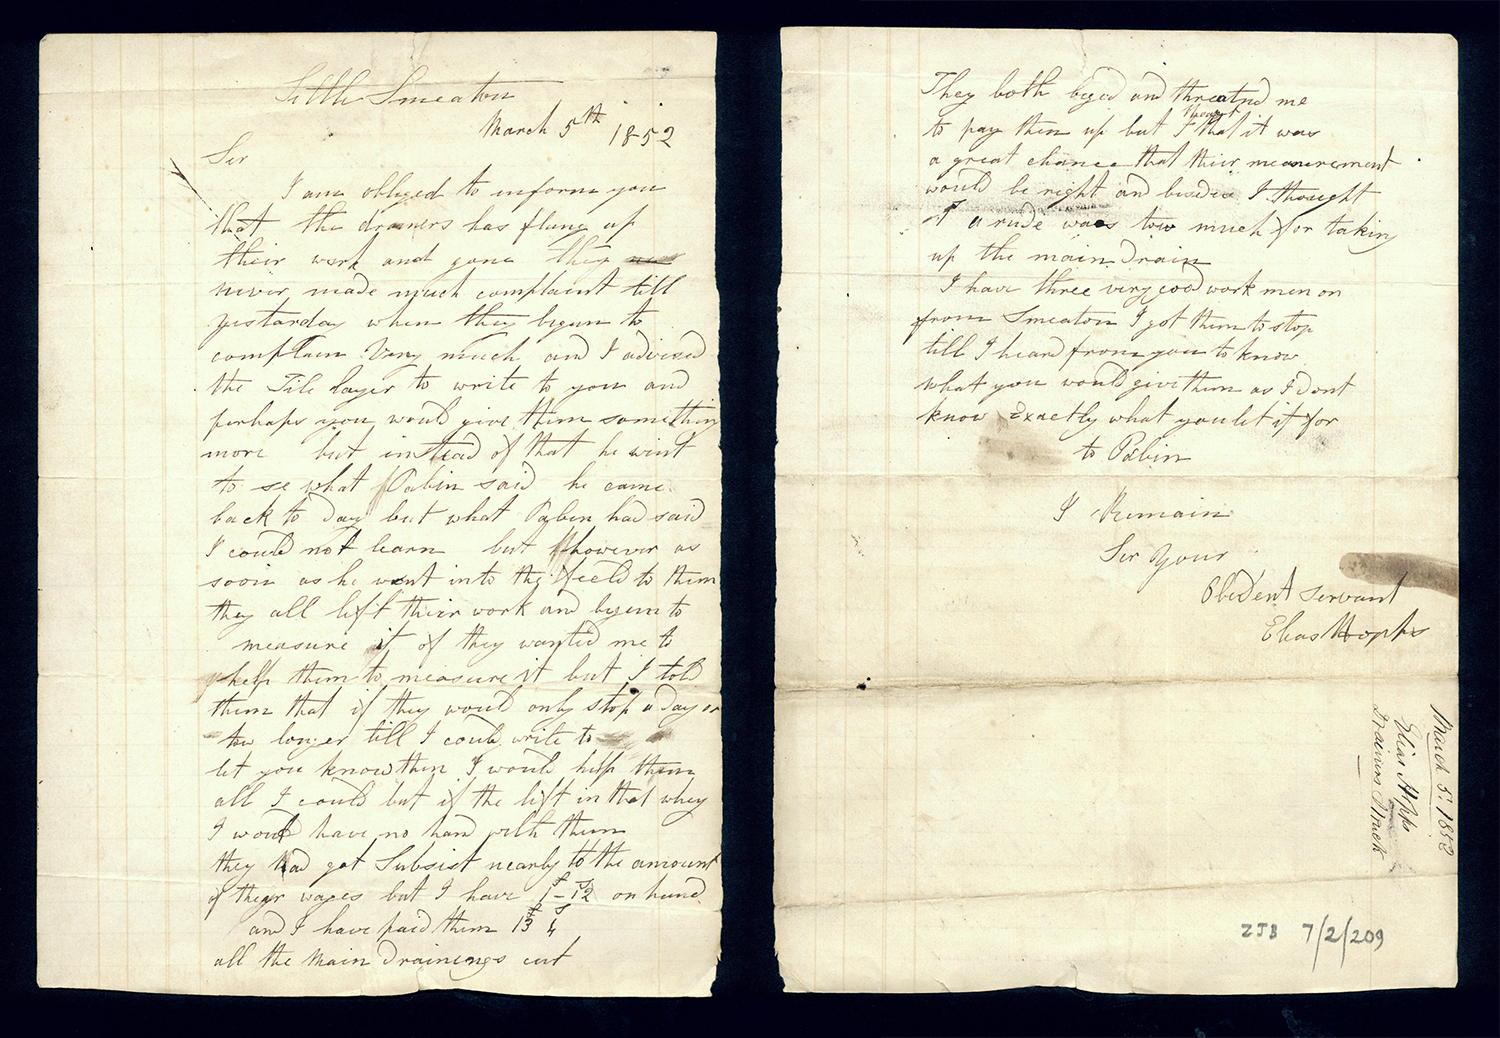 Little Smeaton
March 5th 1852
Sir
I am obliged to inform you
that the drainers has flung up
their work and gone they
never made much complaint till
yestarday when they begun to
complain Very much and I advised
the Tile layer to write to you and
perhaps you would give them something
more but instead of that he went
to se what Pabin said he came
back to day but what Pabin had said
I could not learn but however as
soon as he went into the feeld to them
they all left their work and begun to
measure it of they wanted me to
help them to measure it but I told
them that if they would only stop a day or
tow longer till I could write to
let you know then I would help them
all I could but if the left in that whey
I would have no hand with them
they had got Subsist nearly to the amount
of their wages but I have 1£-12s on hand
and I have paid them 13£ 4s
all the Main Drainings cut
They both beged and threatned me
to pay them up but I theought that it was
a great chance that their measurement
would be right and besides I thought
1s a rude was tow much for taking
up the main Drain
I have three very good work men on
from Smeaton I got them to stop
till I heard from you to know
what you would give them as I dont
know Exactly what you let it for
to Pabin
I Remain
Sir Your
Obedent Servant
Elias Hopks
March 5. 1852
Elias Hopks
Drainers Struck
ZJB 7/2/209